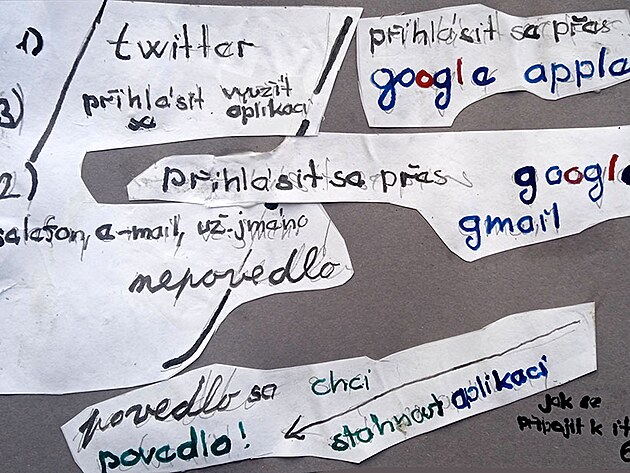 1) twitter
přihlásit se využít aplikaci
přihlásit se přes
google apple
3)
2) přihlásit se přes google
gmail
telefon, e-mail, už. jméno
nepovedlo
povedlo se chci
povedlo! stáhnout aplikaci
jak se
připojit k